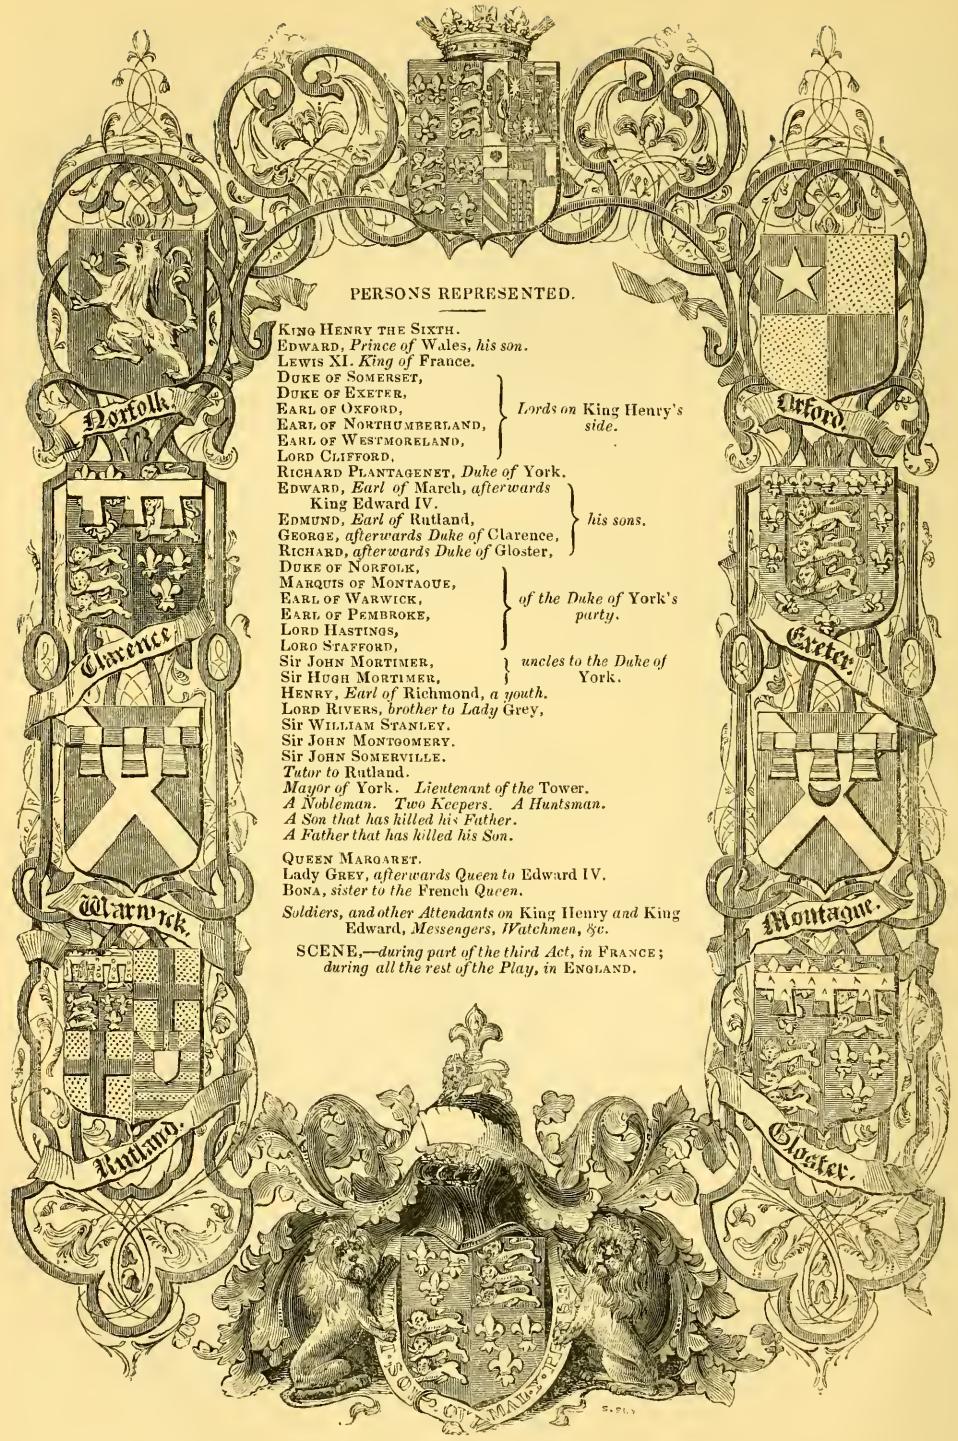 PERSONS REPRESENTED.
KING HENRY THE SIXTH.
EDWARD, Prince of Wales, his son.
LEWIS XI. King of France.
DUKE OF SOMERSET,
DUKE OF EXETER,
EARL OF OXFORD,
EARL OF NORTHUMBERLAND,
EARL OF WESTMORELAND,
LORD CLIFFORD,
Lords on King Henry's
side.
RICHARD PLANTAGENET, Duke of York.
EDWARD, Earl of March, afterwards
King Edward IV.
EDMUND, Earl of Rutland,
GEORGE, afterwards Duke of Clarence,
RICHARD, afterwards Duke of Gloster,
his sons.
DUKE OF NORFOLK,
MARQUIS OF MONTAGUE,
EARL OF WARWICK,
EARL OF PEMBROKE,
LORD HASTINGS,
LORD STAFFORD,
of the Duke of York's
party.
Sir JOHN MORTIMER,
Sir HUGH MORTIMER,
uncles to the Duke of
York.
HENRY, Earl of Richmond, a youth.
LORD RIVERS, brother to Lady Grey,
Sir WILLIAM STANLEY.
Sir JOHN MONTGOMERY.
Sir JOHN SOMERVILLE.
Tutor to Rutland.
Mayor of York. Lieutenant of the Tower.
A Nobleman. Two Keepers. A Huntsman.
A Son that has killed his Father.
A Father that has killed his Son.
QUEEN MARGARET.
Lady GREY, afterwards Queen to Edward IV.
BONA, sister to the French Queen.
Soldiers, and other Attendants on King Henry and King
Edward, Messengers, Watchmen, &c.
SCENE,—during part of the third Act, in FRANCE;
during all the rest of the Play, in ENGLAND.
Norfolk.
Clarence
Warwick.
Rutland.
Orford.
Exeter.
Montague.
Gloster.